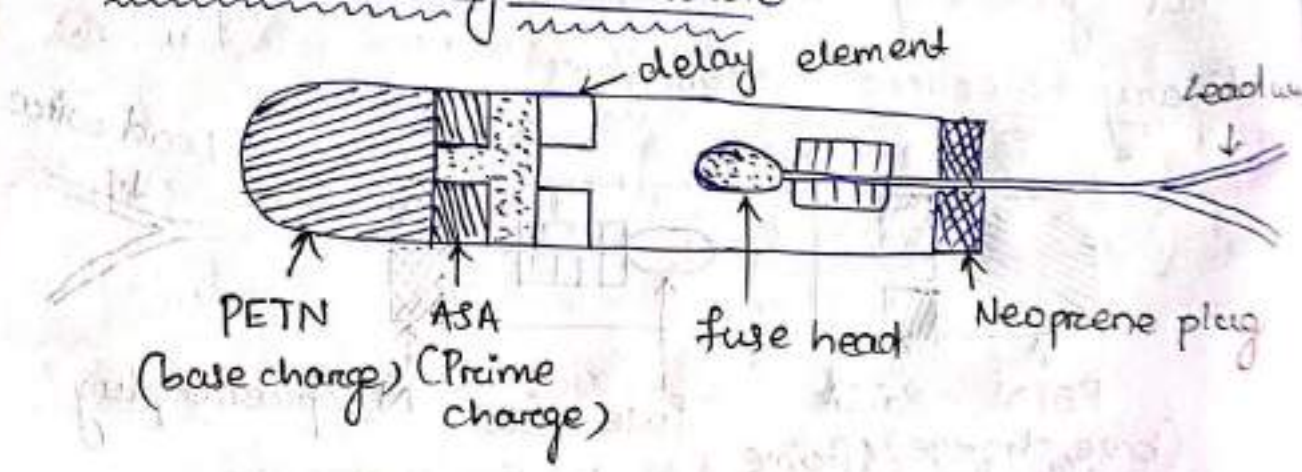 delay element
PETN
(base charge)
ASA
(Prime
charge)
fuse head
Neoprene plug